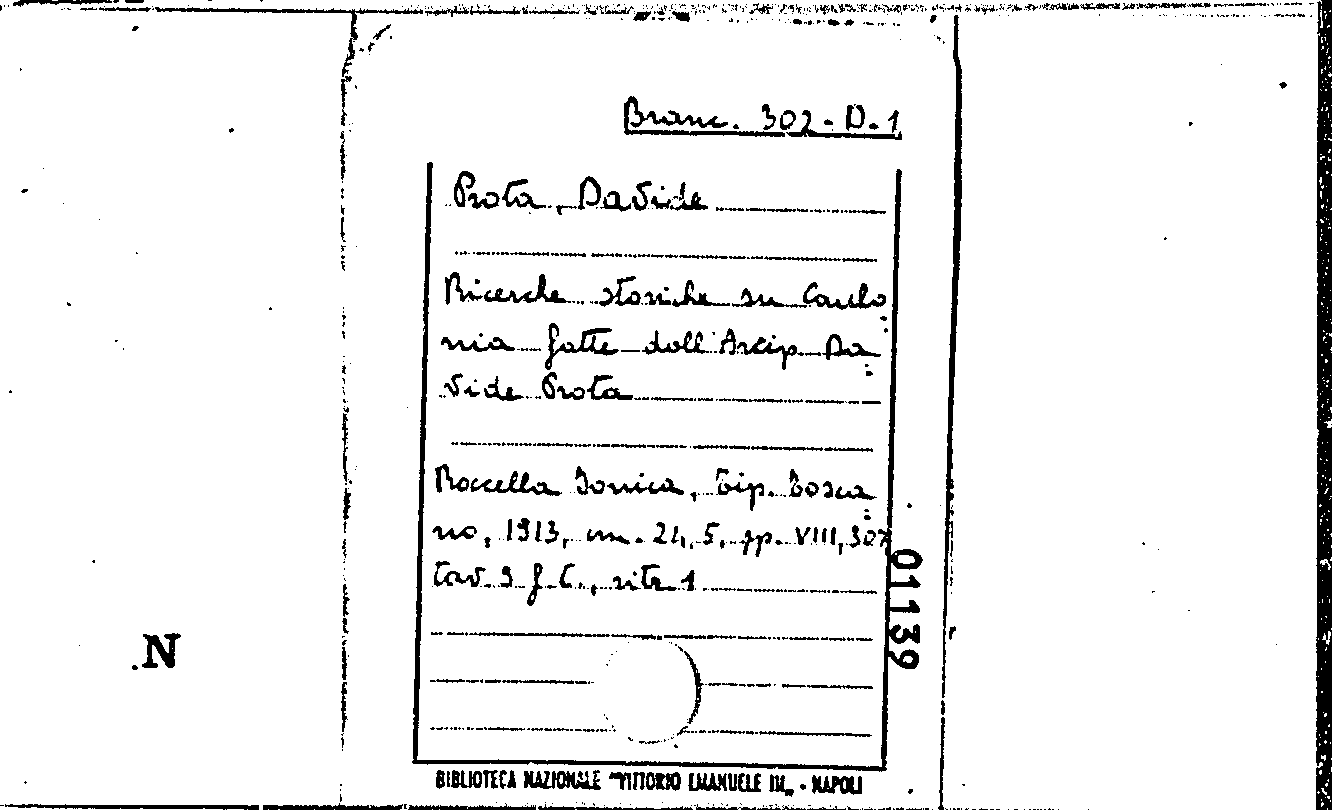 Branc. 302-D-1
Prota, Davide
Ricerche storiche su Caulo
nia fatte dall'Arcip. Da
vide Prota
Roccella Ionica, Tip. Tosca
no, 1913, cm. 24,5, pp. VIII, 307
tav. 9 f. t., ritr. 1
01139
N
BIBLIOTECA NAZIONALE "VITTORIO EMANUELE III" - NAPOLI